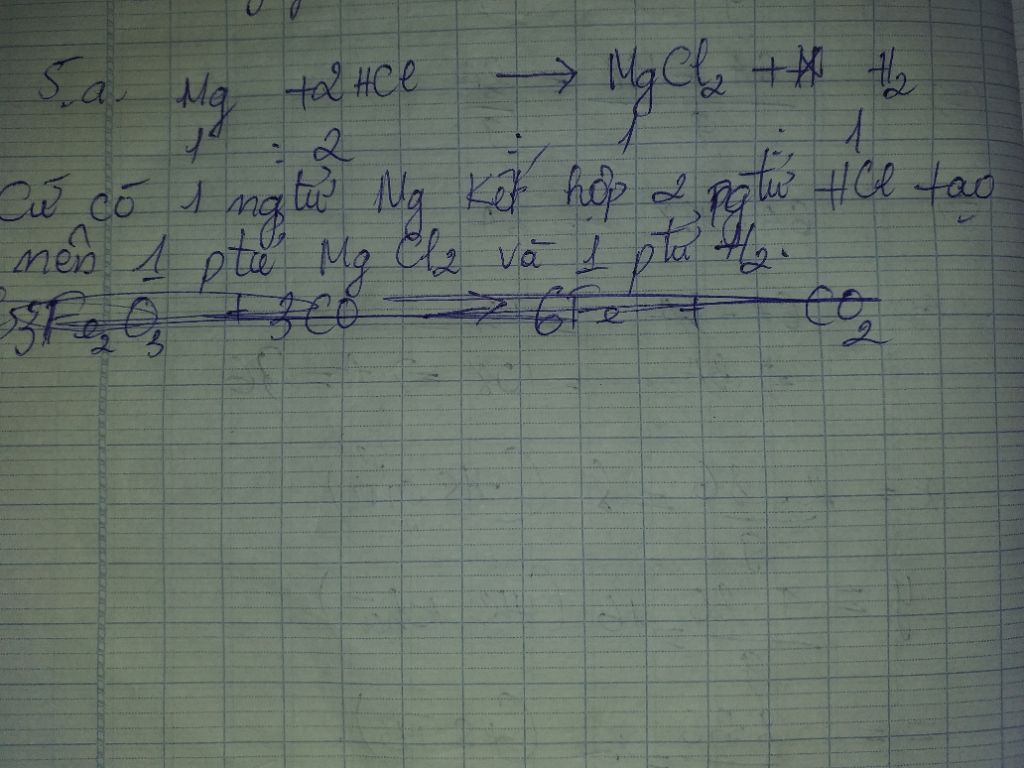 5.a. Mg + 2HCl → MgCl2 + H2
1 : 2 : 1 : 1
Cứ có 1 ngtử Mg kết hợp 2 pgtử HCl tạo
nên 1 ptử MgCl2 và 1 ptử H2.
3Fe2O3 + 3CO → 6Fe + CO2